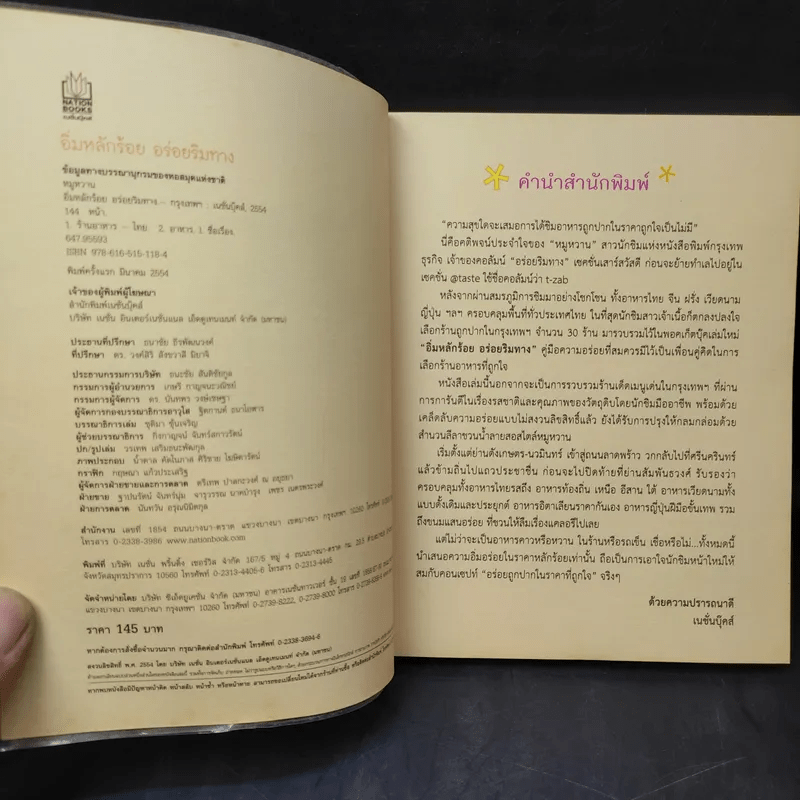 NATION
BOOKS
เนชั่นบุ๊คส์
อิ่มหลักร้อย อร่อยริมทาง
ข้อมูลทางบรรณานุกรมของหอสมุดแห่งชาติ
หมูหวาน
อิ่มหลักร้อย อร่อยริมทาง.-- กรุงเทพฯ : เนชั่นบุ๊คส์, 2554
144 หน้า.
1. ร้านอาหาร -- ไทย 2. อาหาร. I. ชื่อเรื่อง.
647.95593
ISBN 978-616-515-118-4
พิมพ์ครั้งแรก มีนาคม 2554
เจ้าของผู้พิมพ์ผู้โฆษณา
สำนักพิมพ์เนชั่นบุ๊คส์
บริษัท เนชั่น อินเตอร์เนชั่นแนล เอ็ดดูเทนเมนท์ จำกัด (มหาชน)
ประธานที่ปรึกษา ธนาชัย ธีรพัฒนวงศ์
ที่ปรึกษา ดร. วงศ์สิริ สังขวาสี มิยาจิ
ประธานกรรมการบริษัท ธนะชัย สันติชัยกูล
กรรมการผู้อำนวยการ เกษรี กาญจนะวณิชย์
กรรมการผู้จัดการ ดร. นันทพร วงษ์เชษฐา
ผู้จัดการกองบรรณาธิการอาวุโส ฐิตกานต์ ธนาโอฬาร
บรรณาธิการเล่ม ชุติมา ซุ้นเจริญ
ผู้ช่วยบรรณาธิการ กิ่งกาญจน์ จันทร์สกาวรัตน์
ปก/รูปเล่ม วรเทพ เสริมธนะพัฒกุล
ภาพประกอบ
กราฟิก กฤษณา แก้วประเสริฐ
ผู้จัดการฝ่ายขายและการตลาด ตรีเทพ ปาลกะวงศ์ ณ อยุธยา
ฝ่ายขาย ฐาปนรัตน์ จันทร์นุ่ม จารุวรรณ นาคบำรุง เพชร เนตรพระวงศ์
ฝ่ายการตลาด นันทวัน อรุณนิมิตกุล
สำนักงาน เลขที่ 1854 ถนนบางนา-ตราด แขวงบางนา เขตบางนา กรุงเทพฯ 10260
โทรสาร 0-2338-3986 www.nationbook.com
พิมพ์ที่ บริษัท เนชั่น พริ้นติ้ง เซอร์วิส จำกัด 167/5 หมู่ 4 ถนนบางนา-ตราด
จังหวัดสมุทรปราการ 10560 โทรศัพท์ 0-2313-4405-6 โทรสาร 0-2313-4445
จัดจำหน่ายโดย บริษัท ซีเอ็ดยูเคชั่น จำกัด (มหาชน) อาคารเนชั่นทาวเวอร์ ชั้น 19
แขวงบางนา เขตบางนา กรุงเทพฯ 10260 โทรศัพท์ 0-2739-8222, 0-2739-8000
ราคา 145 บาท
หากต้องการสั่งซื้อจำนวนมาก กรุณาติดต่อสำนักพิมพ์ โทรศัพท์ 0-2338-3694-6
สงวนลิขสิทธิ์ พ.ศ. 2554 โดย บริษัท เนชั่น อินเตอร์เนชั่นแนล เอ็ดดูเทนเมนท์ จำกัด (มหาชน)
คำนำสำนักพิมพ์
“ความสุขใดจะเสมอการได้ชิมอาหารถูกปากในราคาถูกใจเป็นไม่มี”
นี่คือคติพจน์ประจำใจของ “หมูหวาน” สาวนักชิมแห่งหนังสือพิมพ์กรุงเทพ
ธุรกิจ เจ้าของคอลัมน์ “อร่อยริมทาง” เซคชั่นเสาร์สวัสดี ก่อนจะย้ายทำเลไปอยู่ใน
เซคชั่น @taste ใช้ชื่อคอลัมน์ว่า t-zab
หลังจากผ่านสมรภูมิการชิมมาอย่างโชกโชน ทั้งอาหารไทย จีน ฝรั่ง เวียดนาม
ญี่ปุ่น ฯลฯ ครอบคลุมพื้นที่ทั่วประเทศไทย ในที่สุดนักชิมสาวเจ้าเนื้อก็ตกลงปลงใจ
เลือกร้านถูกปากในกรุงเทพฯ จำนวน 30 ร้าน มารวบรวมไว้ในพอคเก็ตบุ๊คเล่มใหม่
“อิ่มหลักร้อย อร่อยริมทาง” คู่มือความอร่อยที่สมควรมีไว้เป็นเพื่อนคู่คิดในการ
เลือกร้านอาหารที่ถูกใจ
หนังสือเล่มนี้นอกจากจะเป็นการรวบรวมร้านเด็ดเมนูเด่นในกรุงเทพฯ ที่ผ่าน
การการันตีในเรื่องรสชาติและคุณภาพของวัตถุดิบโดยนักชิมมืออาชีพ พร้อมด้วย
เคล็ดลับความอร่อยแบบไม่สงวนลิขสิทธิ์แล้ว ยังได้รับการปรุงให้กลมกล่อมด้วย
สำนวนลีลาชวนน้ำลายสอสไตล์หมูหวาน
เริ่มตั้งแต่ย่านดังเกษตร-นวมินทร์ เข้าสู่ถนนลาดพร้าว วกกลับไปที่ศรีนครินทร์
แล้วข้ามถิ่นไปแถวประชาชื่น ก่อนจะไปปิดท้ายที่ย่านสัมพันธวงศ์ รับรองว่า
ครอบคลุมทั้งอาหารไทยรสถึง อาหารท้องถิ่น เหนือ อีสาน ใต้ อาหารเวียดนามทั้ง
แบบดั้งเดิมและประยุกต์ อาหารอิตาเลียนราคากันเอง อาหารญี่ปุ่นฝีมือขั้นเทพ รวม
ถึงขนมแสนอร่อย ที่ชวนให้ลืมเรื่องแคลอรี่ไปเลย
แต่ไม่ว่าจะเป็นอาหารคาวหรือหวาน ในร้านหรือรถเข็น เชื่อหรือไม่...ทั้งหมดนี้
นำเสนอความอิ่มอร่อยในราคาหลักร้อยเท่านั้น ถือเป็นการเอาใจนักชิมหน้าใหม่ให้
สมกับคอนเซปท์ “อร่อยถูกปากในราคาที่ถูกใจ” จริงๆ
ด้วยความปรารถนาดี
เนชั่นบุ๊คส์